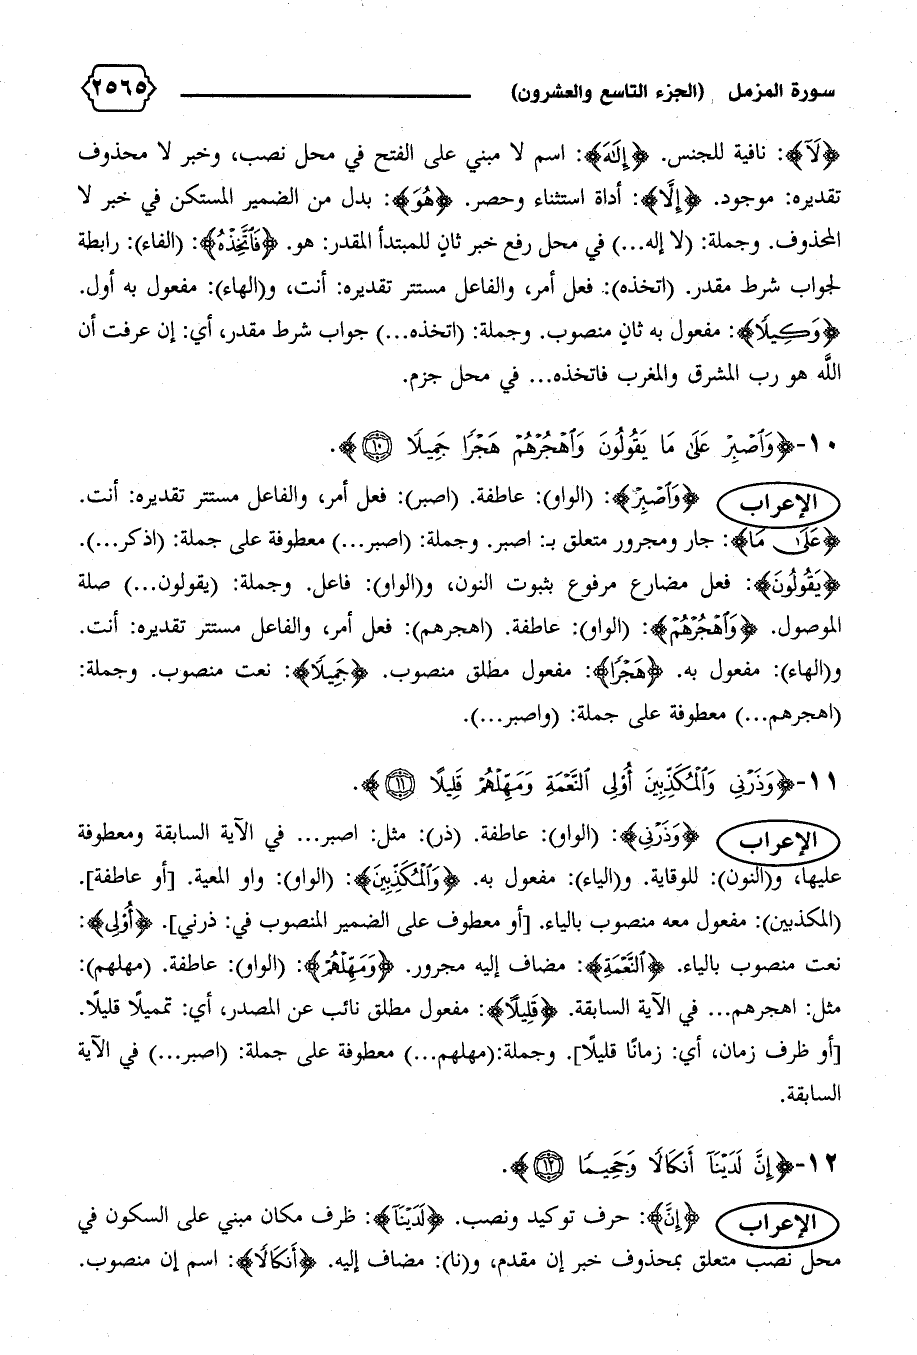 سورة المزمل (الجزء التاسع والعشرون) ٢٥٦٥
﴿لَآ﴾: نافية للجنس. ﴿إِلَٰهَ﴾: اسم لا مبني على الفتح في محل نصب، وخبر لا محذوف
تقديره: موجود. ﴿إِلَّا﴾: أداة استثناء وحصر. ﴿هُوَ﴾: بدل من الضمير المستكن في خبر لا
المحذوف. وجملة: (لا إله...) في محل رفع خبر ثانٍ للمبتدأ المقدر: هو. ﴿فَٱتَّخِذْهُ﴾: (الفاء): رابطة
لجواب شرط مقدر. (اتخذه): فعل أمر، والفاعل مستتر تقديره: أنت، و(الهاء): مفعول به أول.
﴿وَكِيلًا﴾: مفعول به ثانٍ منصوب. وجملة: (اتخذه...) جواب شرط مقدر، أي: إن عرفت أن
اللَّه هو رب المشرق والمغرب فاتخذه... في محل جزم.
١٠-﴿وَٱصْبِرْ عَلَىٰ مَا يَقُولُونَ وَٱهْجُرْهُمْ هَجْرًا جَمِيلًا ١٠﴾.
الإعراب ﴿وَٱصْبِرْ﴾: (الواو): عاطفة. (اصبر): فعل أمر، والفاعل مستتر تقديره: أنت.
﴿عَلَىٰ مَا﴾: جار ومجرور متعلق بـ: اصبر. وجملة: (اصبر...) معطوفة على جملة: (اذكر...).
﴿يَقُولُونَ﴾: فعل مضارع مرفوع بثبوت النون، و(الواو): فاعل. وجملة: (يقولون...) صلة
الموصول. ﴿وَٱهْجُرْهُمْ﴾: (الواو): عاطفة. (اهجرهم): فعل أمر، والفاعل مستتر تقديره: أنت.
و(الهاء): مفعول به. ﴿هَجْرًا﴾: مفعول مطلق منصوب. ﴿جَمِيلًا﴾: نعت منصوب. وجملة:
(اهجرهم...) معطوفة على جملة: (واصبر...).
١١-﴿وَذَرْنِي وَٱلْمُكَذِّبِينَ أُو۟لِى ٱلنَّعْمَةِ وَمَهِّلْهُمْ قَلِيلًا ١١﴾.
الإعراب ﴿وَذَرْنِي﴾: (الواو): عاطفة. (ذر): مثل: اصبر... في الآية السابقة ومعطوفة
عليها، و(النون): للوقاية. و(الياء): مفعول به. ﴿وَٱلْمُكَذِّبِينَ﴾: (الواو): واو المعية. [أو عاطفة].
(المكذبين): مفعول معه منصوب بالياء. [أو معطوف على الضمير المنصوب في: ذرني]. ﴿أُو۟لِى﴾:
نعت منصوب بالياء. ﴿ٱلنَّعْمَةِ﴾: مضاف إليه مجرور. ﴿وَمَهِّلْهُمْ﴾: (الواو): عاطفة. (مهلهم):
مثل: اهجرهم... في الآية السابقة. ﴿قَلِيلًا﴾: مفعول مطلق نائب عن المصدر، أي: تمميلًا قليلًا.
[أو ظرف زمان، أي: زمانًا قليلًا]. وجملة:(مهلهم...) معطوفة على جملة: (اصبر...) في الآية
السابقة.
١٢-﴿إِنَّ لَدَيْنَآ أَنكَالًا وَجَحِيمًا ١٢﴾.
الإعراب ﴿إِنَّ﴾: حرف توكيد ونصب. ﴿لَدَيْنَآ﴾: ظرف مكان مبني على السكون في
محل نصب متعلق بمحذوف خبر إن مقدم، و(نا): مضاف إليه. ﴿أَنكَالًا﴾: اسم إن منصوب.